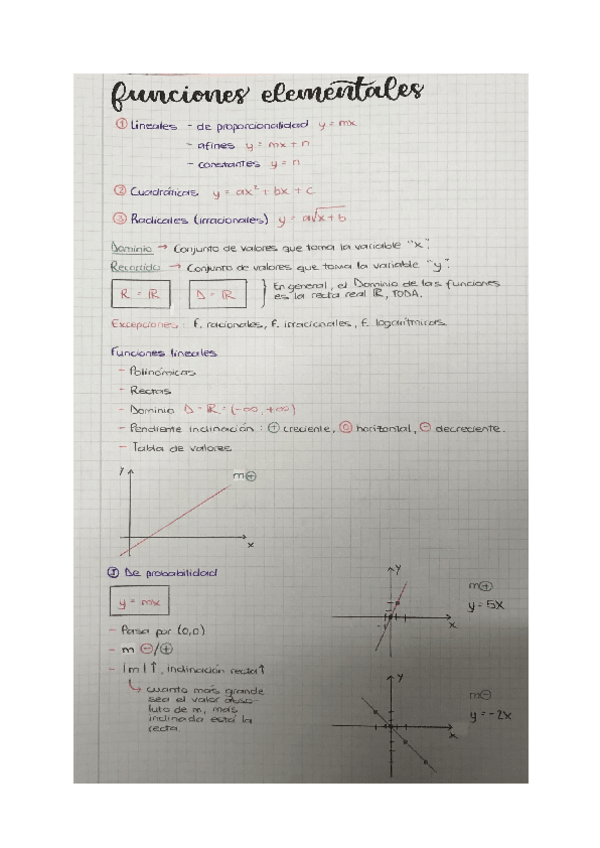 funciones elementales
① Lineales - de proporcionalidad y = mx
- afines y = mx + n
- constantes y = n
② Cuadráticas y = ax² + bx + c
③ Radicales (irracionales) y = a√x + b
Dominio → Conjunto de valores que toma la variable "x".
Recorrido → Conjunto de valores que toma la variable "y".
R = ℝ D = ℝ } En general, el Dominio de las funciones
es la recta real ℝ, TODA.
Excepciones: f. racionales, f. irracionales, f. logarítmicas
Funciones lineales
- Polinómicas
- Rectas
- Dominio D = ℝ = (-∞, +∞)
- Pendiente inclinación: ⊕ creciente, ⓪ horizontal, ⊖ decreciente.
- Tabla de valores
y m⊕
x
① De probabilidad
y = mx
- Pasa por (0,0)
- m ⊖/⊕
- |m|↑, inclinación recta↑
↳ cuanto más grande
sea el valor abso-
luto de m, más
inclinada está la
recta.
y
m⊕
y = 5x
x
y
m⊖
y = -2x
x